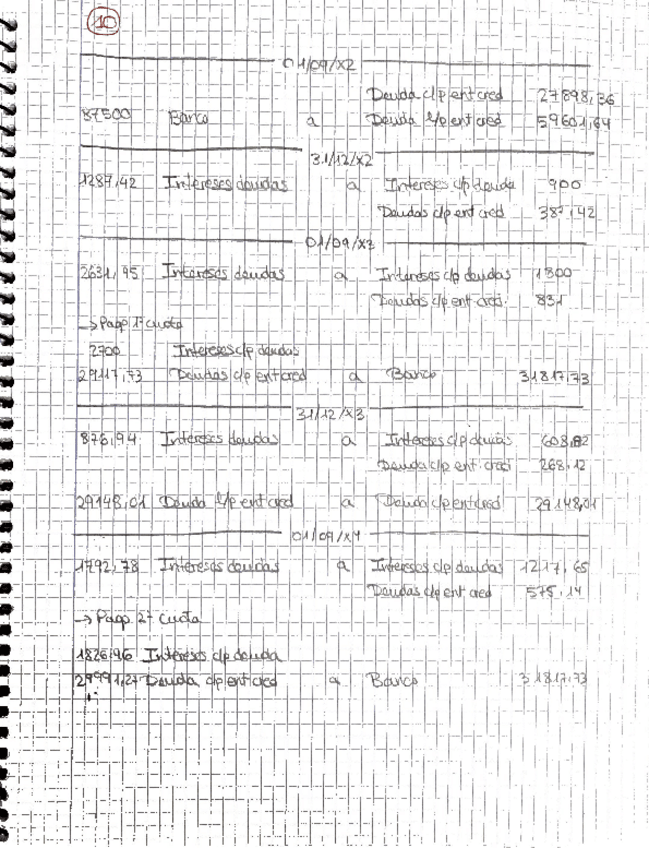 10
01/09/X2
Deuda c/p ent cred 27898,36
87500 Banco a Deuda l/p ent cred 59601,64
31/12/X2
1287,42 Intereses deudas a Intereses c/p deuda 900
Deudas c/p ent cred 387,42
01/09/X3
2631,95 Intereses deudas a Intereses c/p deudas 1800
Deudas c/p ent cred. 831
→ Pago 1ª cuota
2700 Intereses c/p deudas
29117,73 Deudas c/p ent cred a Banco 31817,73
31/12/X3
876,94 Intereses deudas a Intereses c/p deudas 608,82
Deuda c/p ent. cred 268,12
29148,01 Deuda l/p ent cred a Deuda c/p ent cred 29148,01
01/09/X4
1792,78 Intereses deudas a Intereses c/p deudas 1217,65
Deudas c/p ent cred 575,14
→ Pago 2ª cuota
1826,46 Intereses c/p deuda
29991,27 Deuda c/p ent cred a Banco 31817,73